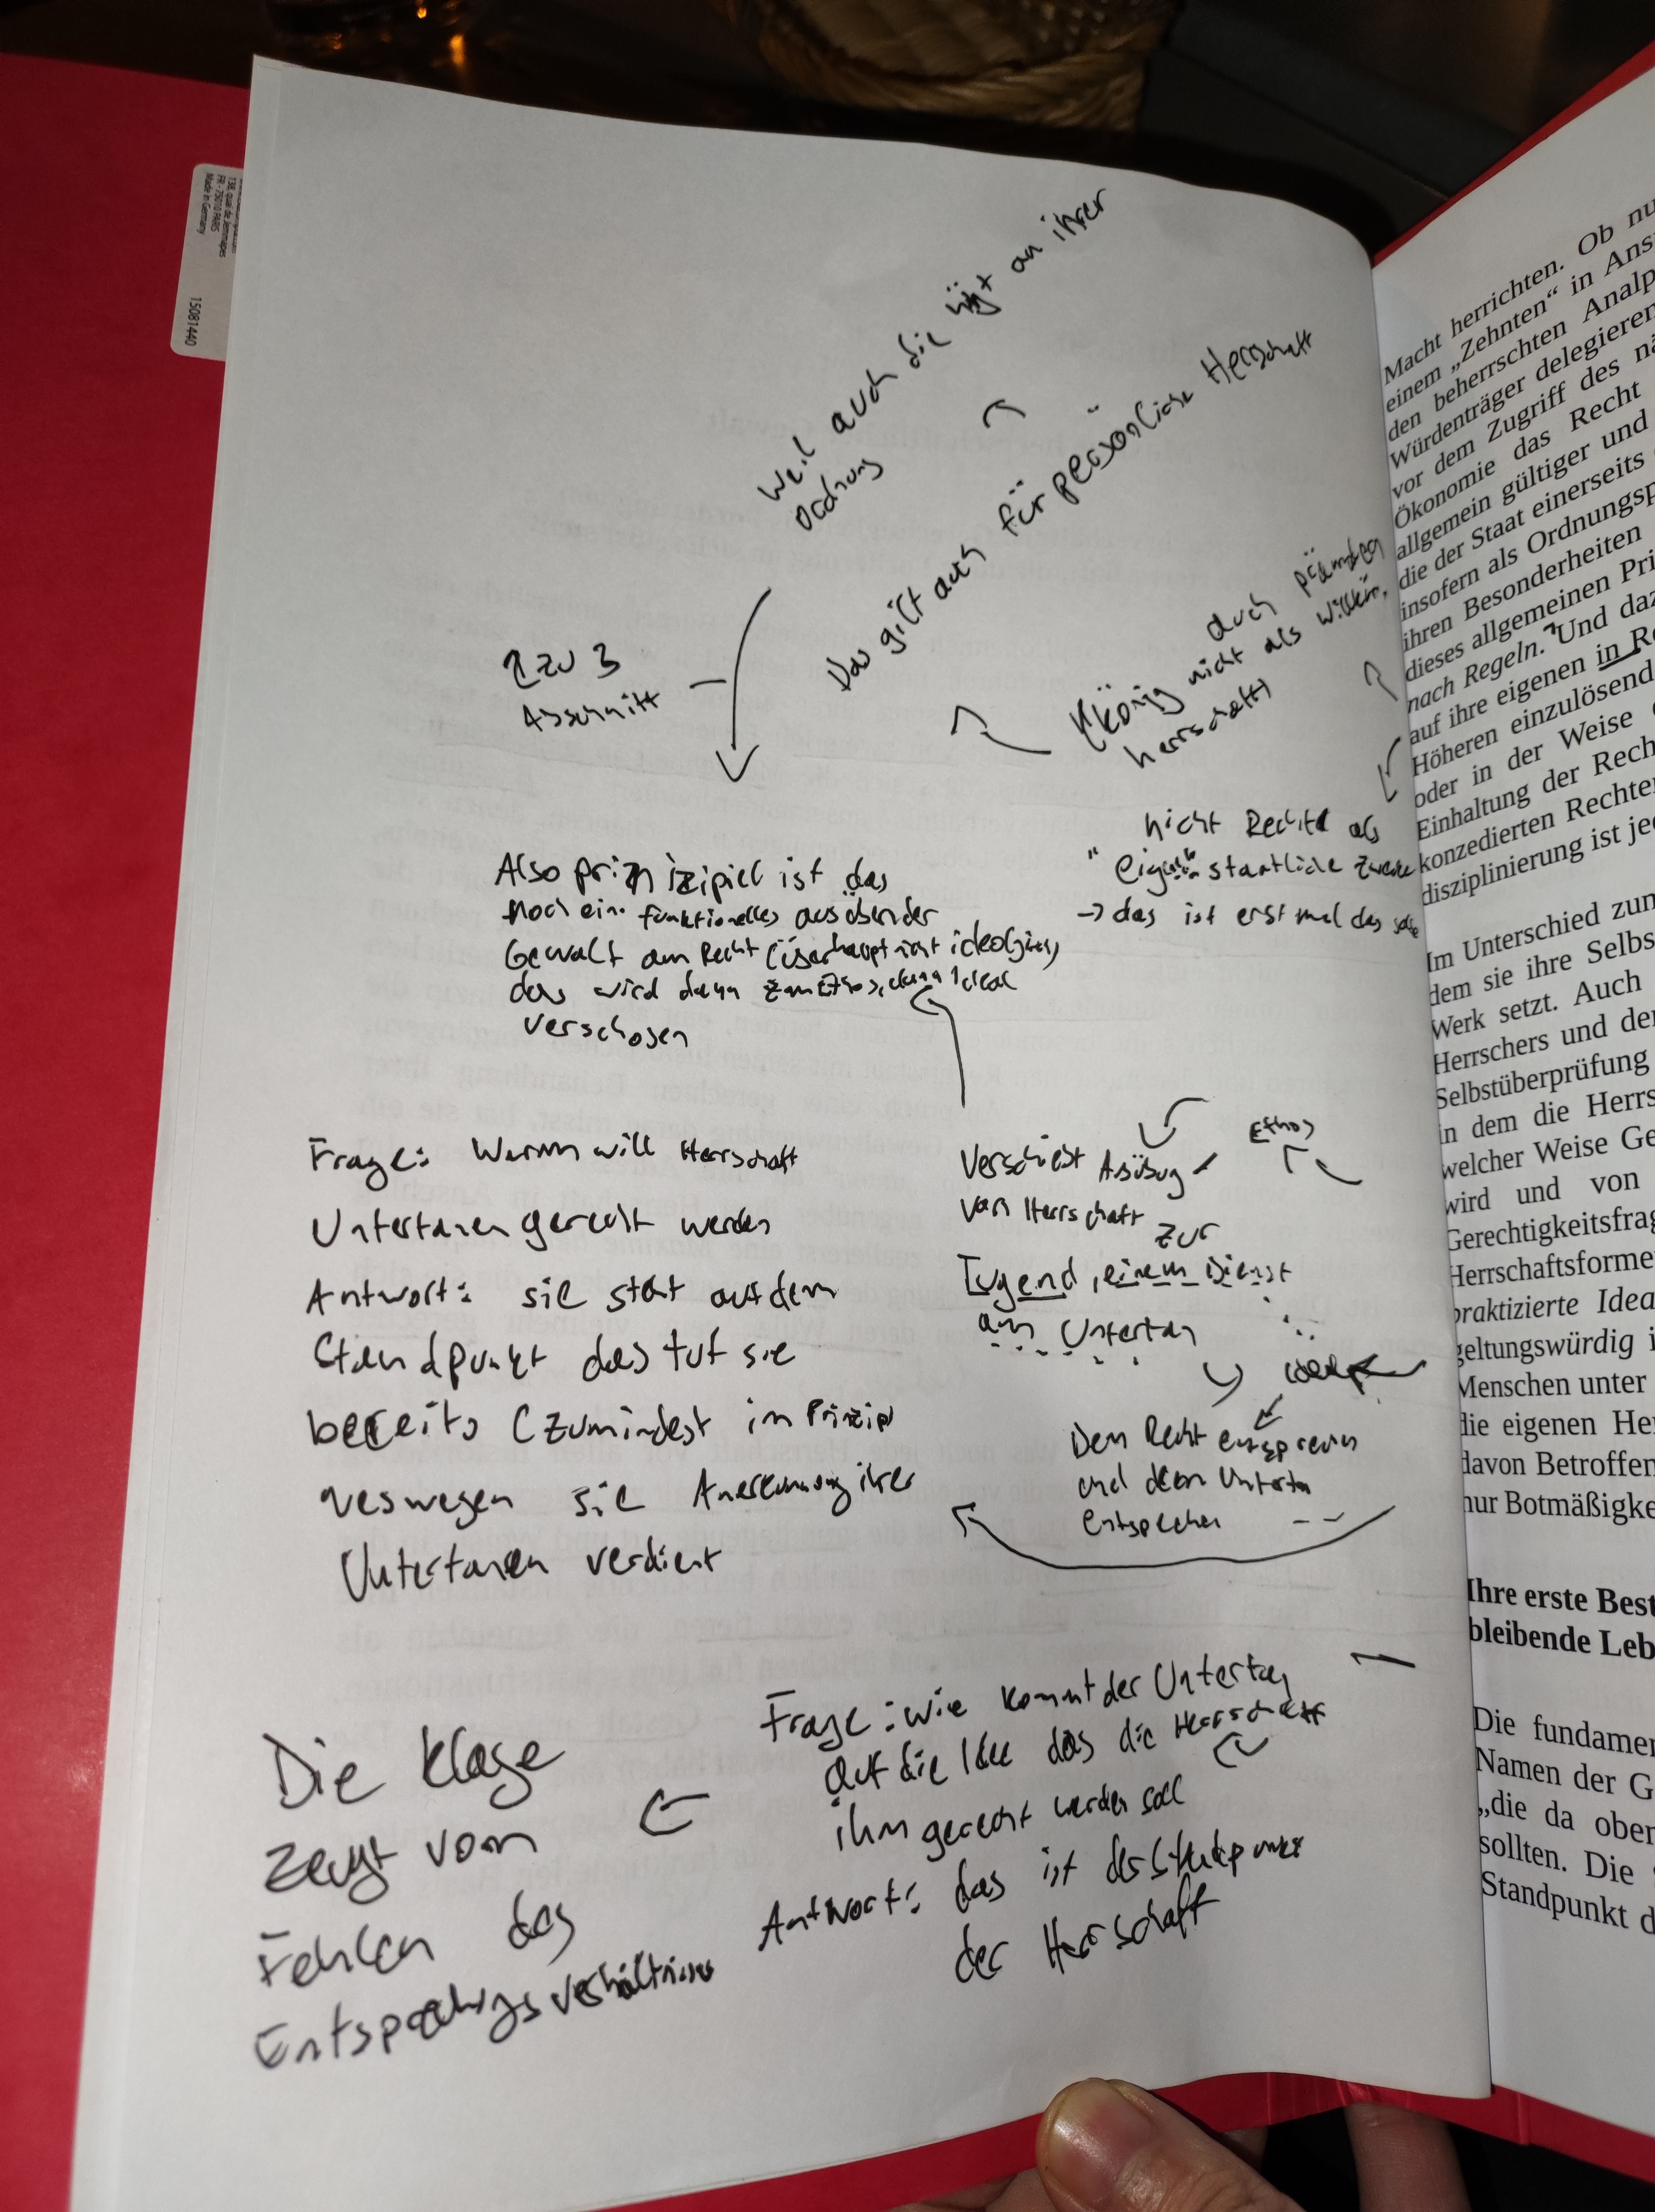 138, quai de Jemmapes
FR - 75010 PARIS
Made in Germany
15081440
Weil auch die hängt an ihrer
Ordnung
Das gilt auch für persönliche Herrschaft
(König nicht als
herrschaft)
auch
2 zu 3
Abschnitt
nicht Rechte als
" staatliche Zwecke
-> das ist erst mal das
Also prinzipiel ist das
noch ein funktionelles ausüben der
Gewalt am Recht (überhaupt nicht
das wird dann zum Ethos, Ideal
verschoben
Frage: Warum will Herrschaft
Untertanen gerecht werden
Antwort: sie steht auf dem
Standpunkt das tut sie
bereits (zumindest im Prinzip
weswegen sie Anerkennung ihrer
Untertanen verdient
Ethos
Verschiebt Ausübung
von Herrschaft zur
Tugend, einem Dienst
am Untertan
Dem Recht entsprechen
und dem Untertan
entsprechen
Frage: wie kommt der Untertan
auf die Idee das die Herrschaft
ihm gerecht werden soll
Antwort: das ist der Standpunkt
der Herrschaft
Die Klage
zeugt vom
Fehlen des
Entsprechungsverhältnisses
Macht herrichten. Ob nu
einem „Zehnten“ in Ans
den beherrschten Analp
Würdenträger delegieren
vor dem Zugriff des nä
Ökonomie das Recht
allgemein gültiger und
die der Staat einerseits
insofern als Ordnungsp
ihren Besonderheiten
dieses allgemeinen Pri
nach Regeln. Und daz
auf ihre eigenen in Re
Höheren einzulösend
oder in der Weise
Einhaltung der Rech
konzedierten Rechte
disziplinierung ist je
Im Unterschied zum
dem sie ihre Selbs
Werk setzt. Auch
Herrschers und der
Selbstüberprüfung
in dem die Herrs
welcher Weise Ge
wird und von
Gerechtigkeitsfrag
Herrschaftsforme
praktizierte Idea
geltungswürdig i
Menschen unter
die eigenen He
davon Betroffen
nur Botmäßigke
Ihre erste Best
bleibende Leb
Die fundamen
Namen der G
„die da ober
sollten. Die
Standpunkt d